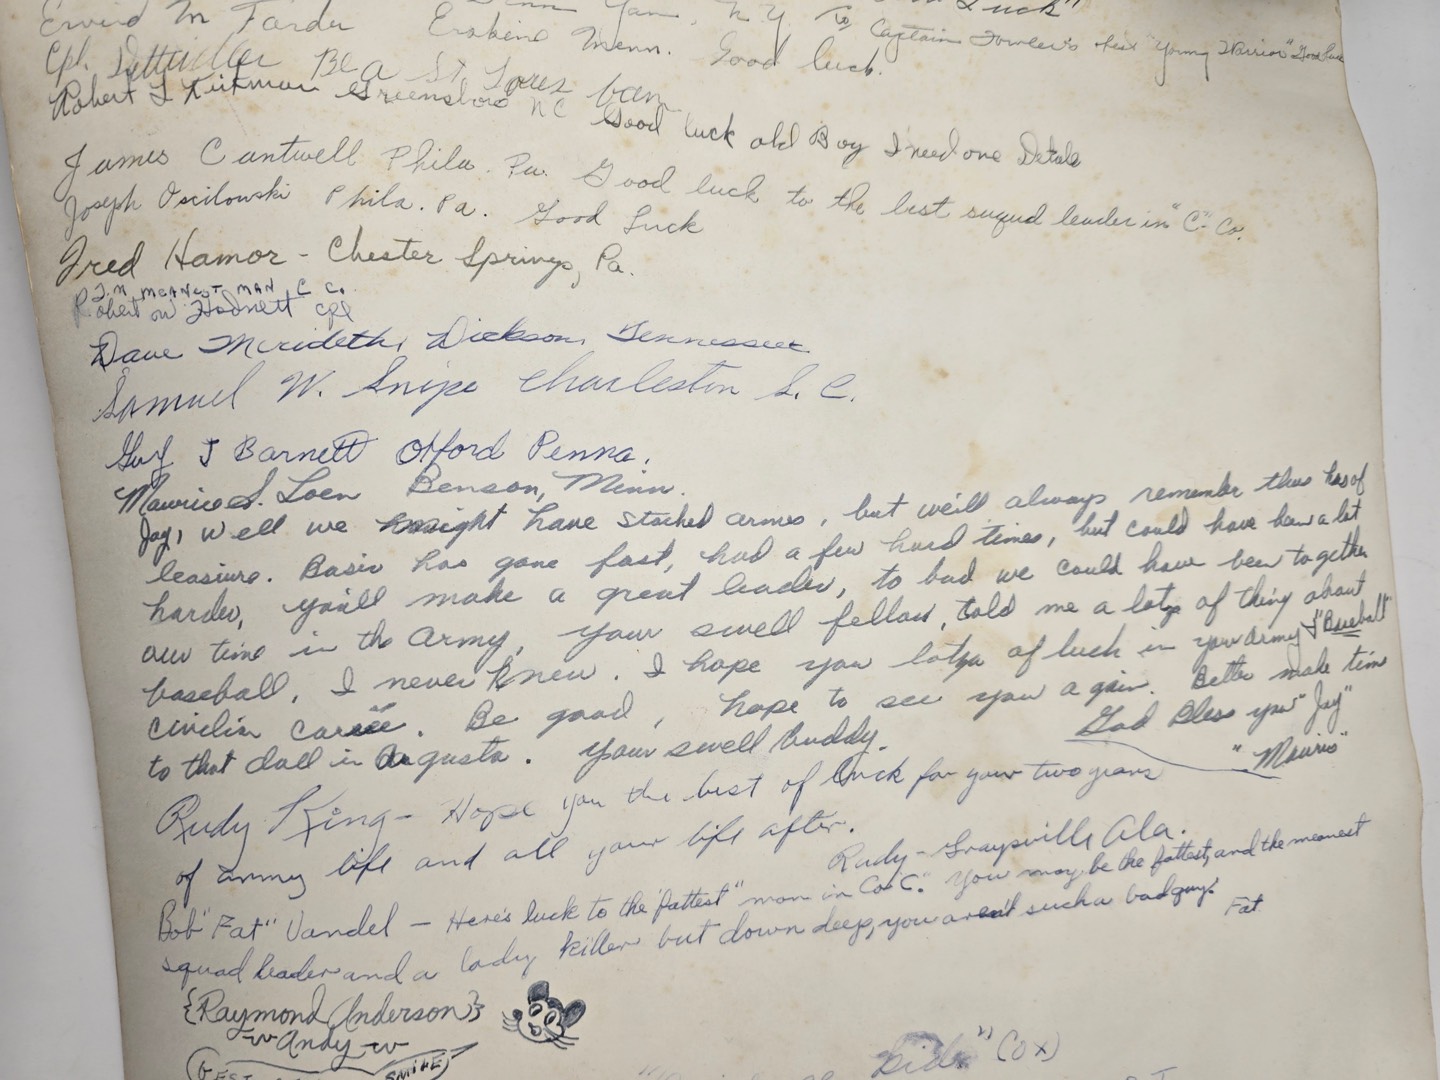 Luck"
Ervid M Farder Erskine Minn. Good luck.
Penn Yan, N.Y. To Captain Fowler's best "Young Warrior" Good luck
Cpl. Be a St. Louis
Robert L Greensboro NC Good luck old Boy I need one Details
James Cantwell Phila. Pa. Good luck to the best squad leader in "C" Co.
Joseph Oscilowski Phila. Pa. Good Luck
Fred Hamor - Chester Springs, Pa.
I.M MEANEST MAN C Co.
Robert W. Hodnett cpl
Dave Merideth, Dickson, Tennessee
Samuel W. Snipe Charleston S. C.
Guy J Barnett Oxford Penna.
Maurice S. Loen Benson, Minn.
Jay, well we might have stacked arms, but we'll always remember those hrs of
leasiure. Basic has gone fast, had a few hard times, but could have been a lot
harder, you'll make a great leader, to bad we could have been together
our time in the army, your swell fellow, told me a lots of thing about
baseball, I never knew. I hope you lotza of luck in your army & "Baseball"
civilian career. Be good, hope to see you again. Better make time
to that doll in Augusta. Your swell buddy. God Bless you "Jay"
"Mauris"
Rudy King - Hope you the best of luck for your two years
of army life and all your life after.
Rudy - Graysville Ala.
Bob "Fat" Vandel - Here's luck to the "fattest" man in Co "C." You may be the fattest, and the meanest
squad leader and a lady killer but down deep, you aren't such a bad guy. Fat.
{Raymond Anderson}
Andy
BEST SMILE
(OX)